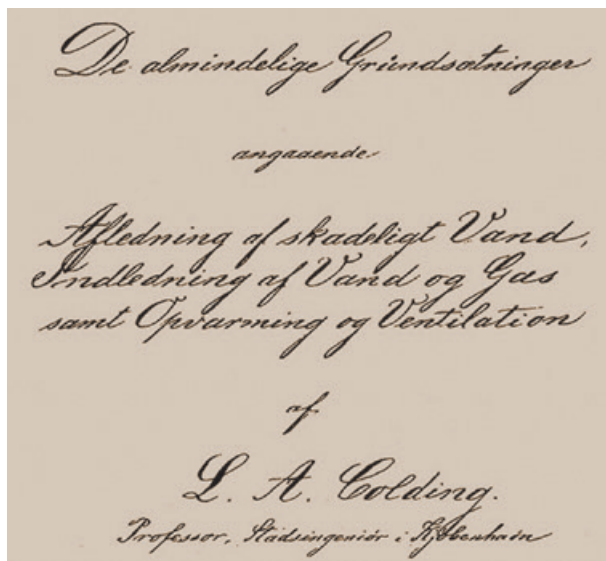 De almindelige Grundsætninger
angaaende
Afledning af skadeligt Vand,
Indledning af Vand og Gas
samt Opvarming og Ventilation
af
L. A. Colding.
Professor, Stadsingeniør i Kjøbenhavn